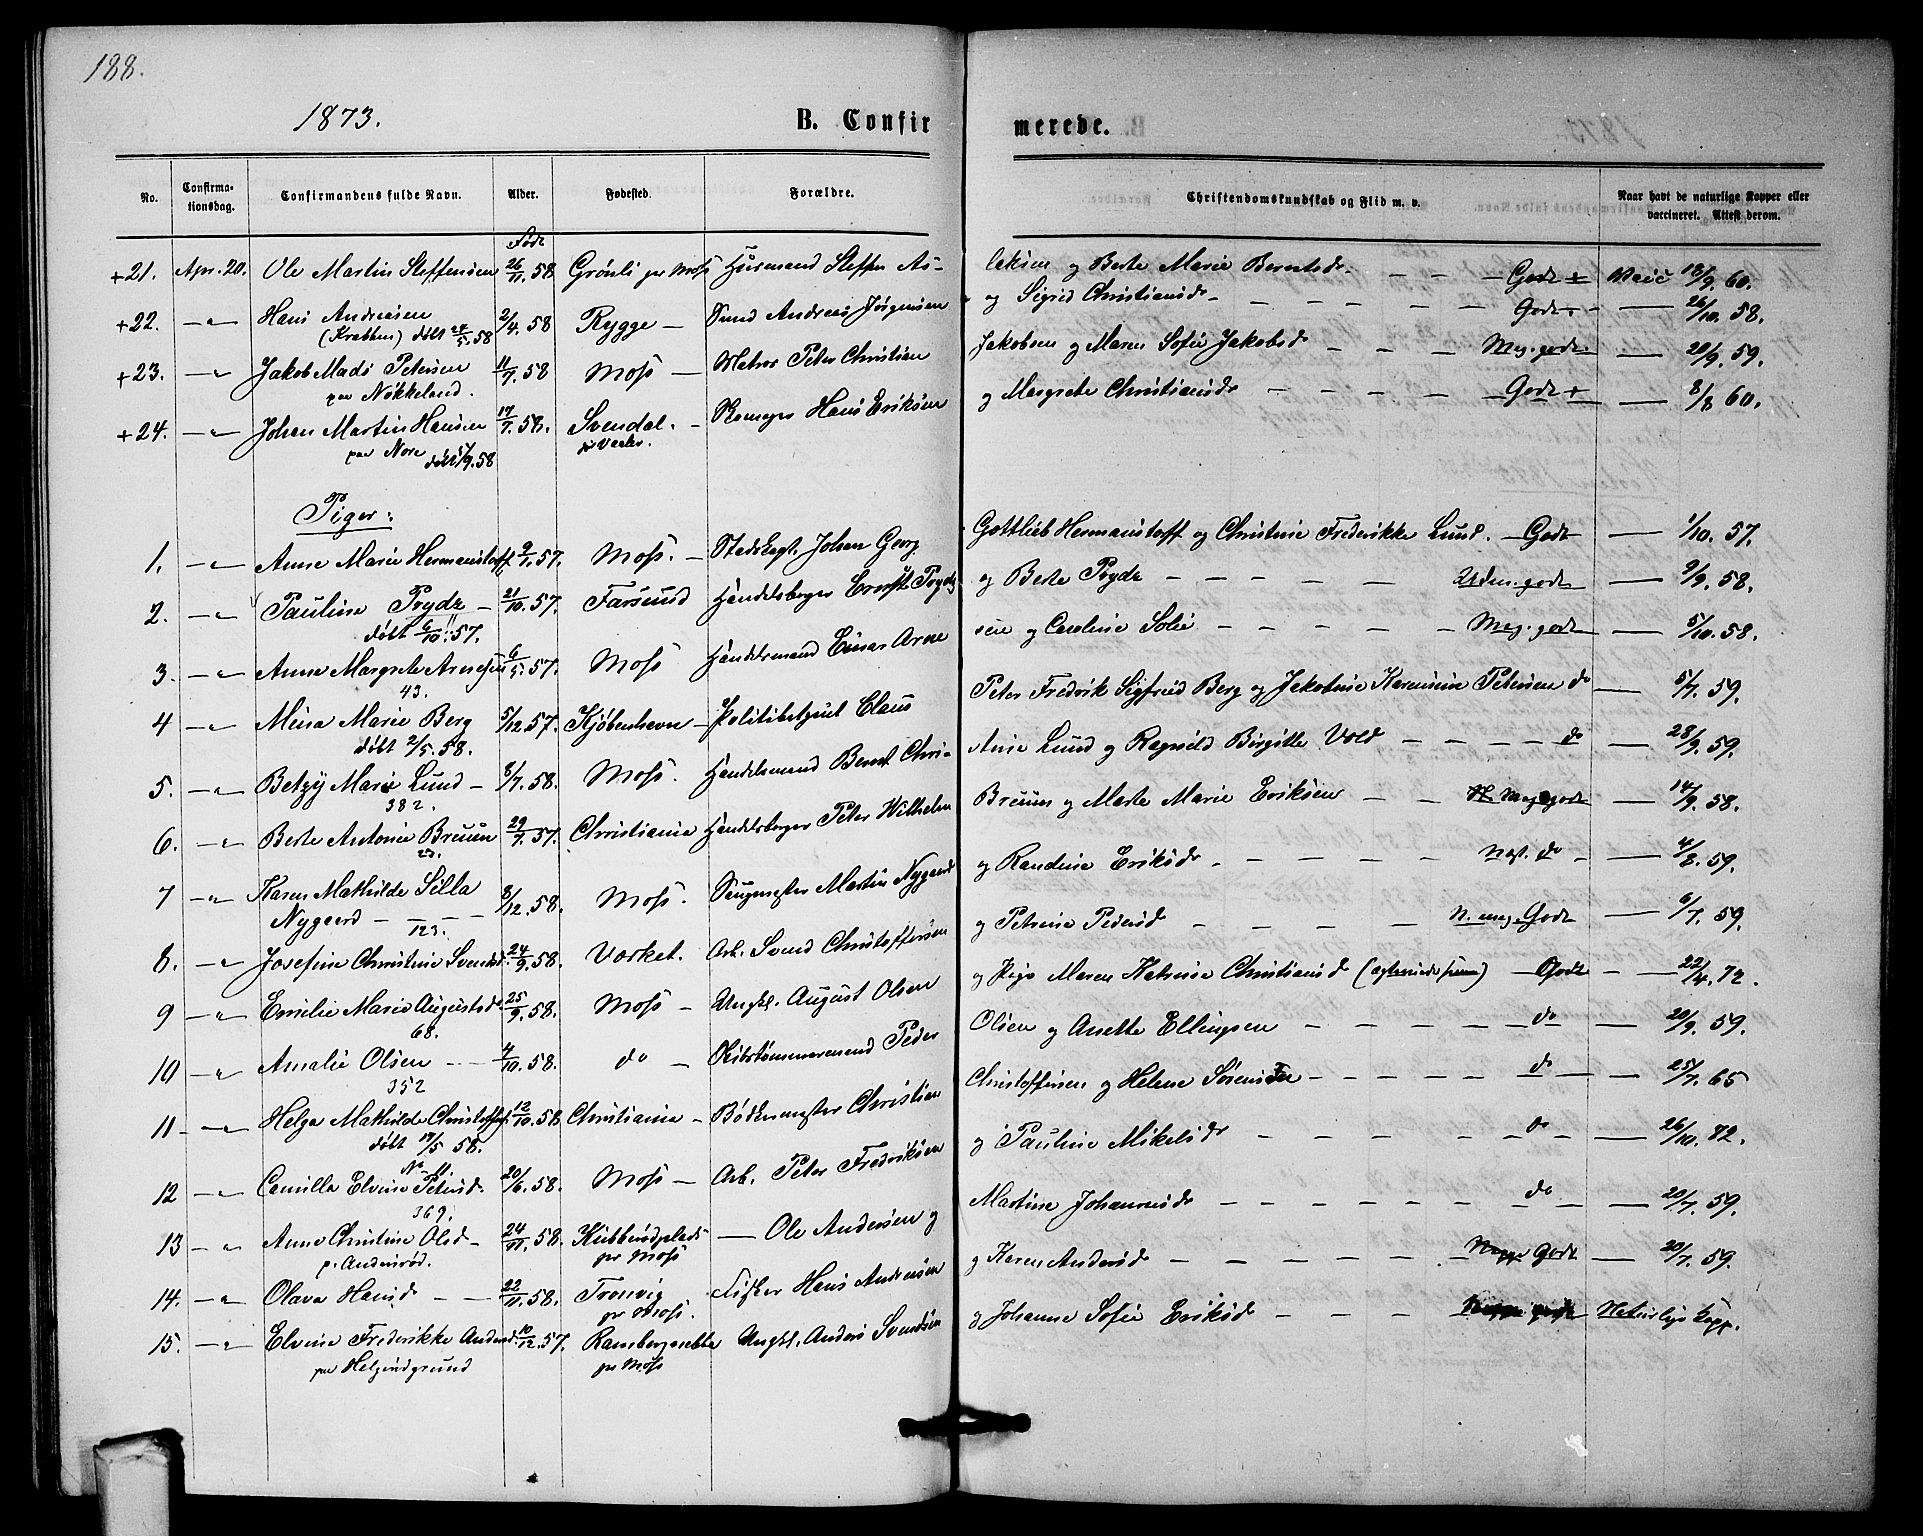 188.
1873.
B. Confirmerede.
No. Confirmationsdag. Confirmandens fulde Navn. Alder. Fødested. Forældre. Christendomskundskab og Flid m. v. Naar havt de naturlige Kopper eller vaccineret. Attest derom.
Født
+21. Apr. 20. Ole Martin Steffensen 26/11. 58. Grönli pr Moss Husmand Steffen As- laksen og Berte Marie Berntsdr. — Godt + Vacc 18/9. 60.
+22. —"— Hans Andreasen 2/4. 58 Rygge — Svend Andreas Jörgensen og Sigrid Christiansdr — Godt + 26/10. 58.
(Krabben) döbt 24/5. 58
+23. —"— Jakob Mads Petersen 11/7. 58 Moss — Matros Peter Christian Jakobsen og Maren Sofie Jakobsd. — Meg. godt. — 20/9. 59.
paa Nökkeland.
+24. —"— Johan Martin Hansen 17/7. 58. Svendal. — Skomager Hans Eriksen og Margrete Christiansdr — Godt + — 8/8 60.
paa Nore döbt /9. 58 pr Vaaler.
Piger:
1. —"— Anne Marie Hermanstorff 9/7. 57. Moss. — Stadskapt. Johan Georg Gottlieb Hermanstorff og Christine Frederikke Lund. — Godt — 1/10. 57.
2. —"— Pauline Prydz — 21/10. 57. Farsund Handelsborger Ernst Prydz og Berte Prydz — Udm. godt — 9/9. 58.
döbt 6/10 57.
3. —"— Anne Margrete Arnesen 6/5. 57. Moss Handelsmand Einar Arnesen og Caroline Solie — Meg. godt — 5/10. 58.
43.
4 —"— Mina Marie Berg 5/12. 57. Kjöbenhavn — Politibetjent Claus Peter Fredrik Sigfried Berg og Jakobine Karensine Petersen do — 5/7. 59.
döbt 2/5. 58.
5. —"— Betzy Marie Lund — 8/7. 58. Moss. Handelsmand Bernt Christine Lund og Ragnild Birgitte Vold — do — 28/9. 59.
382.
6. —"— Berte Antonie Bruun 29/7. 57. Christiania Handelsborger Peter Wilhelm Bruun og Marte Marie Eriksen — Meg. godt — 14/9. 58.
23.
7 —"— Karen Mathilde Silla 8/12. 58. Moss. Saugmester Martin Nygaard og Randine Eriksdr — do — 4/8. 59.
Nygaard — 123.
8. —"— Josefine Christine Svendsd. 24/9. 58. Værket. Arb. Svend Christoffersen og Petrine Pedersd — N. meg. Godt — 6/7. 59.
9 —"— Emilie Marie Augustsdr 25/9. 58. Moss — Ungkl. August Olsen og Pige Maren Katrine Christiansd — Godt — 22/4. 72.
68.
10 —"— Amalie Olsen — 4/10. 58. do — Skibstömmermand Peder Olsen og Anette Ellingsen — do — 20/9. 59.
352
11 —"— Helga Mathilde Christoffersen 12/10. 58 Christiania — Bödkermester Christian Christoffersen og Helene Sörensen — do — 25/7. 65
döbt 14/5 58.
12 —"— Camilla Elvine Petersd. 20/6. 58. Moss — Arb. Peter Fredriksen og Pauline Mikelsdr — do — 26/10. 72.
369.
13 —"— Anne Christine Olsd — 24/11. 58. Kubberödplads pr Moss — Ole Andersen og Martine Johannesdr — do — 20/7. 59.
p. Andersröd.
14. —"— Olava Hansd. — 22/11. 58. Tronvig pr Moss. Fisker Hans Andersen og Karen Andersd — Godt — 20/7. 59.
15. —"— Elvine Frederikke Andersd. 10/12. 57. Rambergsrebba pr Moss Ungkl. Anders Svendsen og Johanne Sofie Eriksdr — Naturlige Kopp.
paa Helgerödgrund